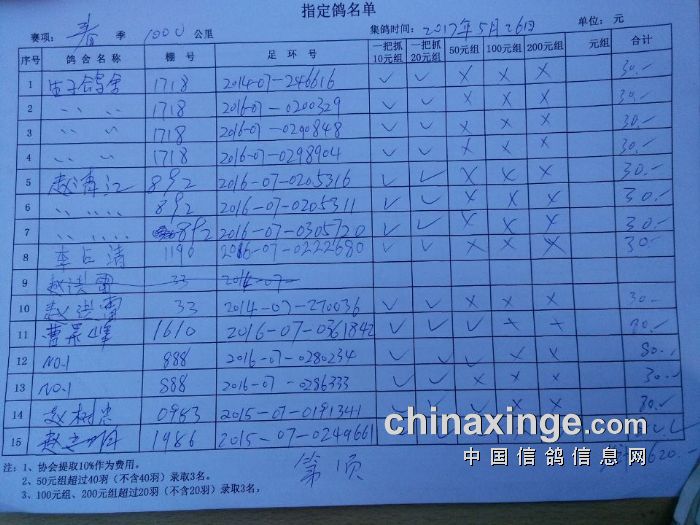 指定鸽名单
赛项: 春 季 1000 公里 集鸽时间: 2017年5月26日 单位: 元
序号 鸽舍名称 棚号 足环号 一把抓10元组 一把抓20元组 50元组 100元组 200元组 元组 合计
1 1718 2014-07-246616 ✓ ✓ × × × 30.-
2 〃 〃 1718 2016-07-0200329 ✓ ✓ × × × 30.-
3 〃 〃 1718 2016-07-0290848 ✓ ✓ × × × 30.-
4 〃 〃 1718 2016-07-0298904 ✓ ✓ × × × 30.-
5 赵海江 892 2016-07-0205316 ✓ ✓ × × × 30.-
6 〃 〃 892 2016-07-0205311 ✓ ✓ × × × 30.-
7 〃 〃 892 2016-07-0305720 ✓ ✓ × × × 30.-
8 李占清 1196 2016-07-0222680 ✓ ✓ × × × 30.-
9 赵洪雷 33 2016-07-
10 赵洪雷 33 2014-07-270036 ✓ ✓ × × × 30.-
11 1610 2016-07-0361842 ✓ ✓ ✓ × ×
12 NO.1 888 2016-07-0280234 ✓ ✓ ✓ × × 80.-
13 NO.1 888 2016-07-0286333 ✓ ✓ × × × 30.-
14 赵树忠 0983 2015-07-0191341 ✓ ✓
15 1986 2015-07-0249661
注: 1、协会提取10%作为费用。
2、50元组超过40羽(不含40羽)录取3名。
3、100元组、200元组超过20羽(不含20羽)录取3名,
第 页
620.-
chinaxinge.com
中国信鸽信息网